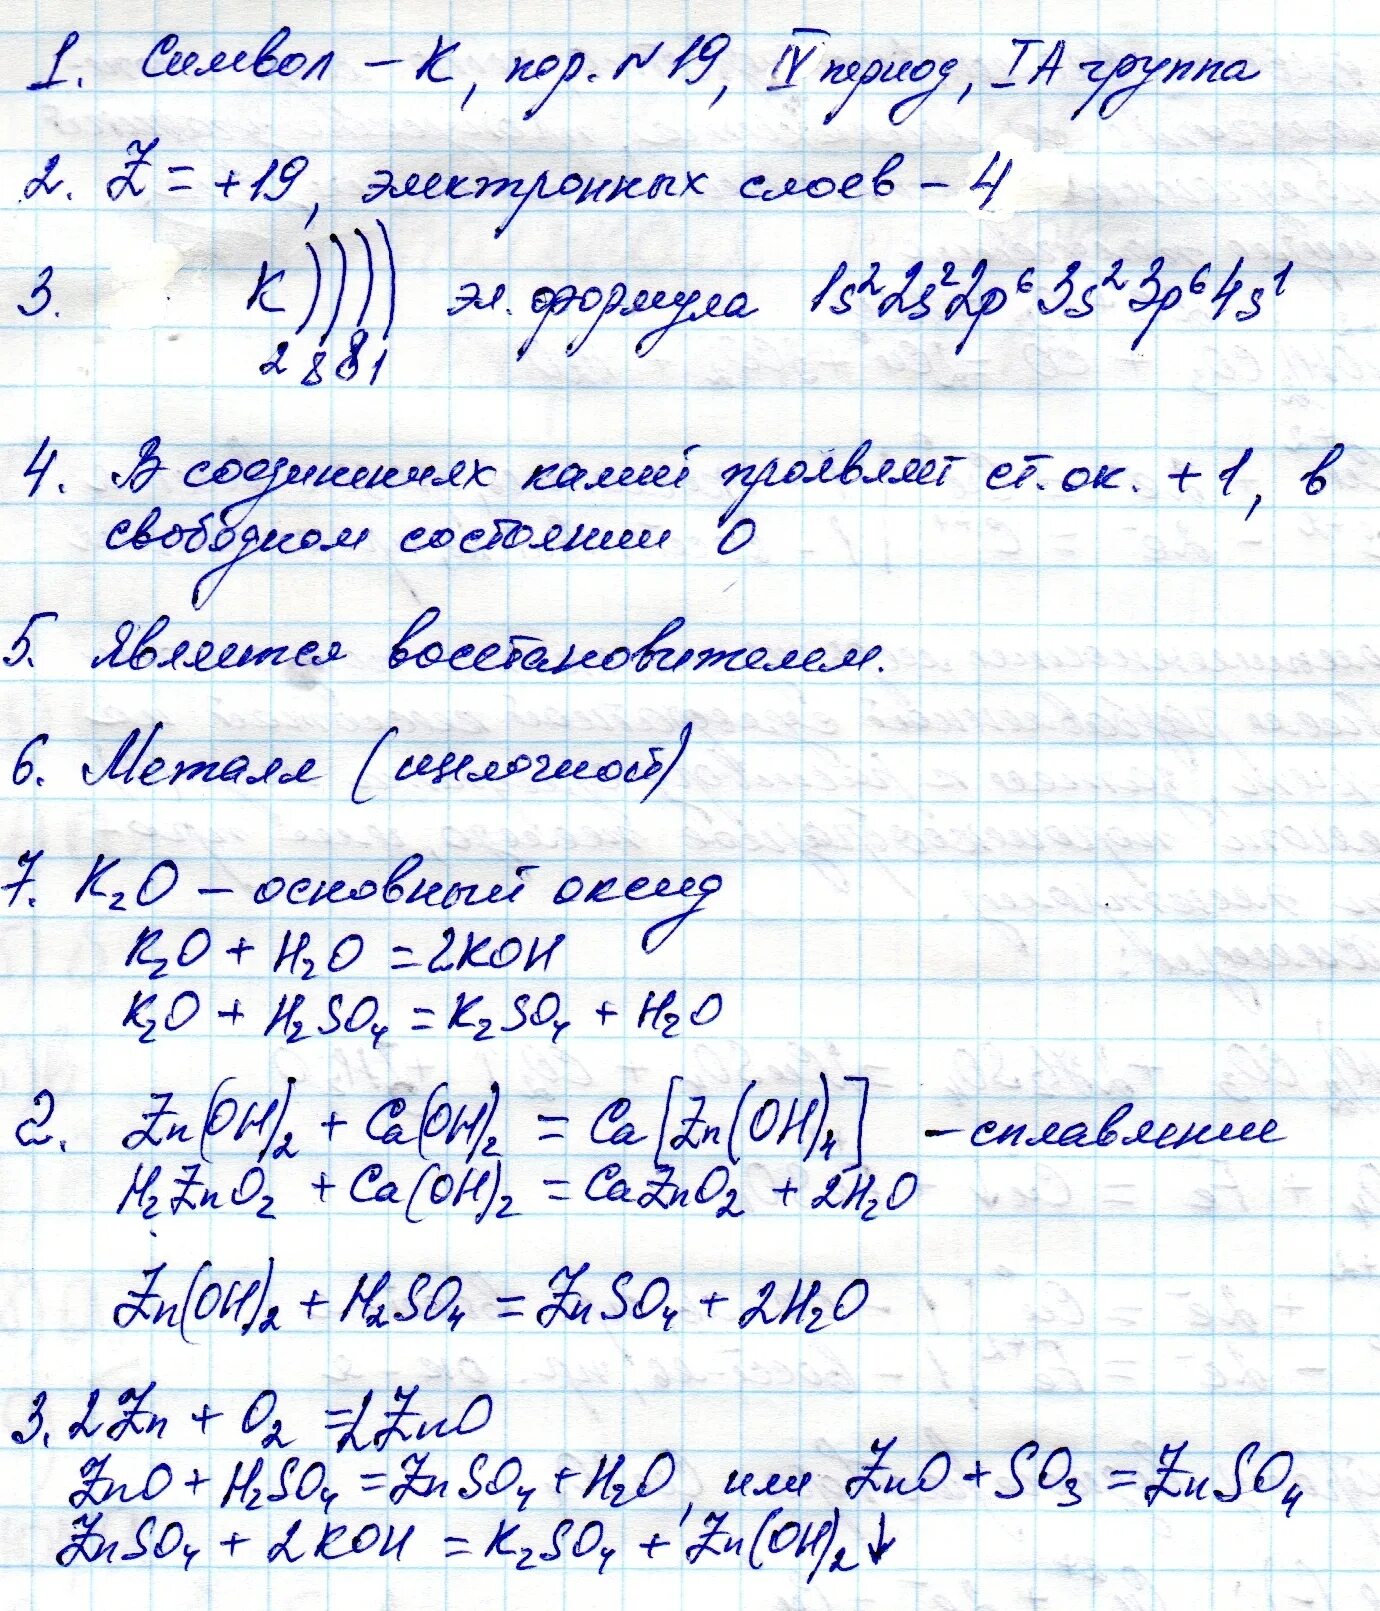 1. Символ – К, пор. №19, IV период, IА группа
2. Z = +19, электронных слоев – 4
3. К ) ) ) ) эл. формула 1s²2s²2p⁶3s²3p⁶4s¹
2 8 8 1
4. В соединениях калий проявляет ст. ок. +1, в
свободном состоянии 0
5. Является восстановителем.
6. Металл (щелочной)
7. K₂O – основный оксид
K₂O + H₂O = 2KOH
K₂O + H₂SO₄ = K₂SO₄ + H₂O
2. Zn(OH)₂ + Ca(OH)₂ = Ca[Zn(OH)₄] – сплавление
H₂ZnO₂ + Ca(OH)₂ = CaZnO₂ + 2H₂O
Zn(OH)₂ + H₂SO₄ = ZnSO₄ + 2H₂O
3. 2Zn + O₂ = 2ZnO
ZnO + H₂SO₄ = ZnSO₄ + H₂O, или ZnO + SO₃ = ZnSO₄
ZnSO₄ + 2KOH = K₂SO₄ + Zn(OH)₂↓